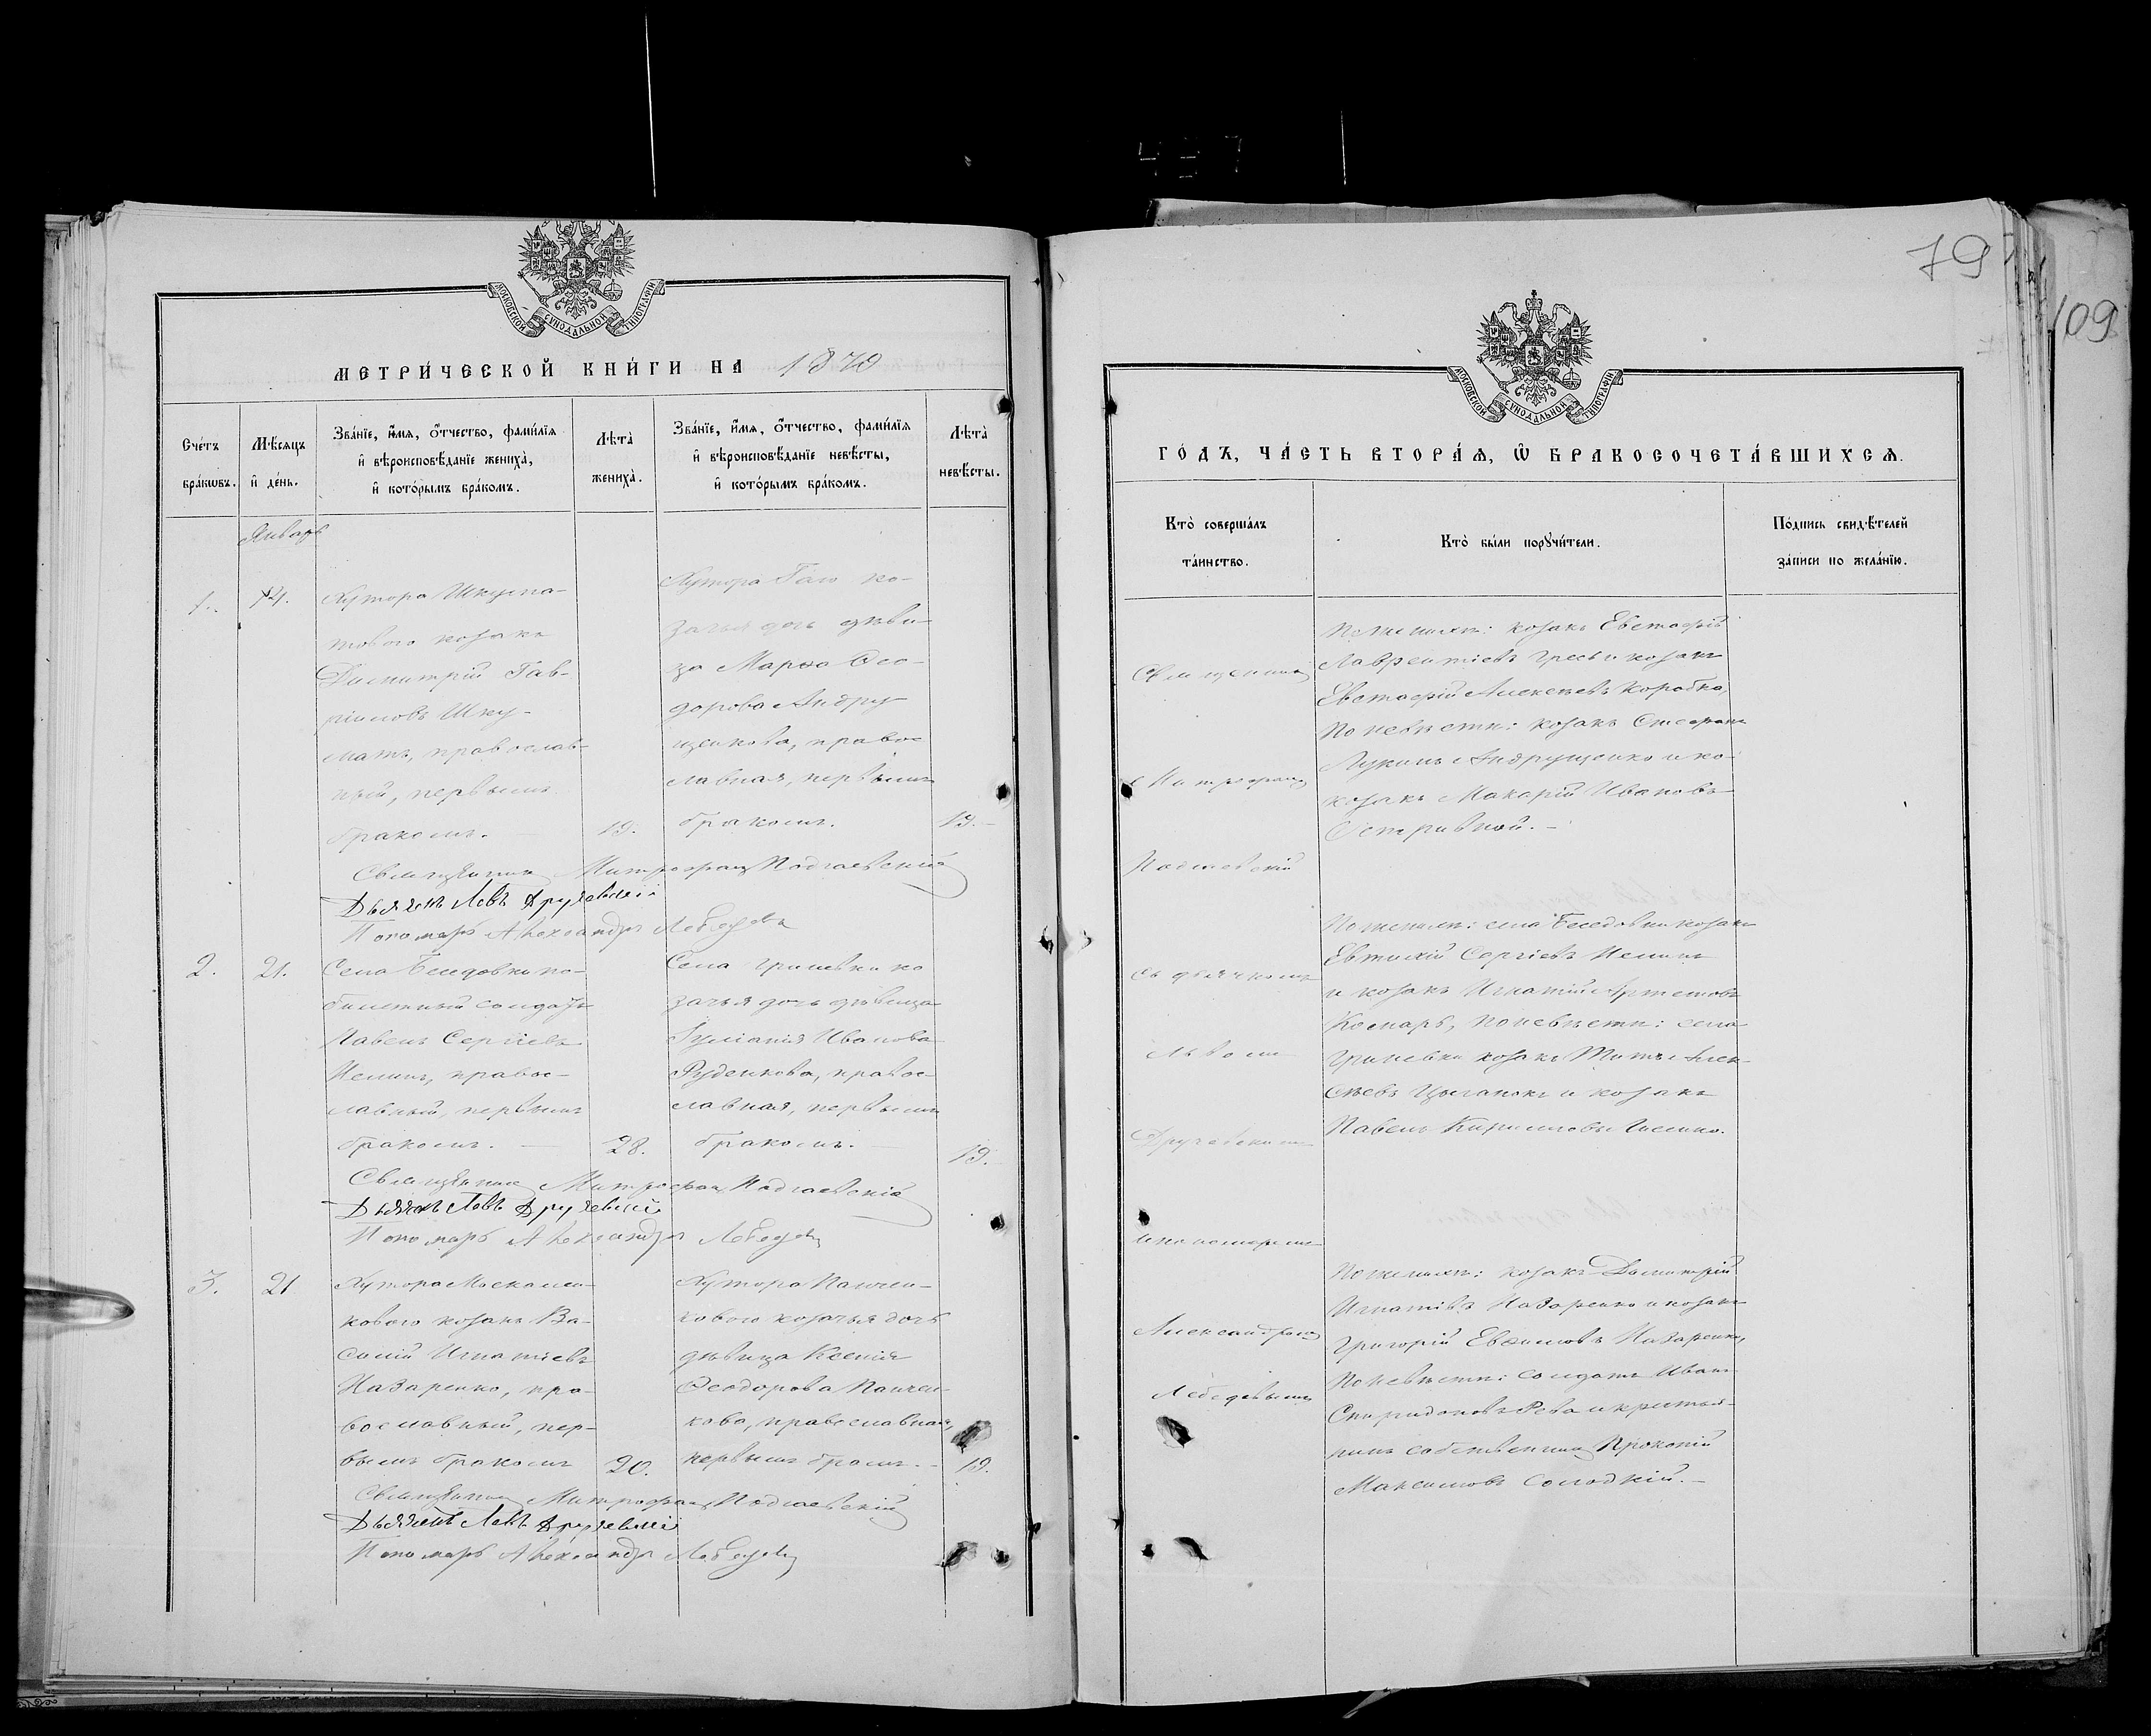 79
109
МОСКОВСКОЙ СѴНОДАЛЬНОЙ ТИПОГРАФІИ
МЕТРИ́ЧЕСКОЙ КНИ́ГИ НА 1879
Сче́тъ бра́кωвъ.
Мѣ́сяцъ и҆ де́нь.
Зва́нїе, и҆́мѧ, ѻ҆́тчество, фами́лїѧ
и҆ вѣроисповѣ́данїе женихà,
и҆ кото́рымъ бра́комъ.
Лѣ́та женихà.
Зва́нїе, и҆́мѧ, ѻ҆́тчество, фами́лїѧ
и҆ вѣроисповѣ́данїе невѣ́сты,
и҆ кото́рымъ бра́комъ.
Лѣ́та невѣ́сты.
Январь
1.
14.
Хутора Шкума-
тового козакъ
Димитрій Гав-
ріиловъ Шку-
матъ, православ-
ный, первымъ
бракомъ.
19.
Хутора Гаго ко-
зачья дочь дѣви-
ца Марѳа Ѳео-
дорова Андру
щенкова, правос
лавная, первымъ
бракомъ.
19.
Священникъ Митрофанъ Подгаевскій
Дьячекъ Левъ Дручевскій
Пономарь Александръ Лебедевъ
2.
21.
Села Беседовки
билетный солдатъ
Павелъ Сергіевъ
правос-
лавный, первымъ
бракомъ.
28.
Села Гриневки ко
зачья дочь дѣвица
Іуліанія Иванова
Руденкова, правос-
лавная, первымъ
бракомъ.
19.
Священникъ Митрофанъ Подгаевскій
Дьячекъ Левъ Дручевскій
Пономарь Александръ Лебедевъ
3.
21
Хутора
кового козакъ Ва-
силій Игнатіевъ
Назаренко, пра-
вославный, пер-
вымъ бракомъ
20.
Хутора Панчен-
кового козачья дочь
дѣвица Ксенія
Ѳеодорова Панчен-
кова, православная,
первымъ браомъ.
19.
Священникъ Митрофанъ Подгаевскій
Дьячекъ Левъ Дручевскій
Пономарь Александръ Лебедевъ
МОСКОВСКОЙ СѴНОДАЛЬНОЙ ТИПОГРАФІИ
ГО́ДЪ, ЧА́СТЬ ВТОРА́Ѧ, Ѽ БРАКОСОЧЕТА́ВШИХСѦ.
Кто̀ соверша́лъ
та́инство.
Кто̀ бы́ли порꙋчи́тели.
По́дпись свидѣ́телей
за́писи по жела́нїю.
Священникъ
Митрофанъ
Подгаевскій
съ дьячкомъ
Львомъ
Дручевскимъ
и пономаремъ
Александромъ
Лебедевымъ
По женихѣ: козакъ Евстафій
Лаврентіевъ Гресь и козакъ
Евстафій Алексѣевъ Коробка,
По невѣстѣ: козакъ Стефанъ
Лукинъ Андрущенко и ко-
козакъ Макарій Ивановъ
Остривной.
По женихѣ: села Беседовки козакъ
Евтихій Сергіевъ
и козакъ Игнатій Артемовъ
Комаръ, по невѣстѣ: села
Гриневки козакъ Титъ Алек-
сѣевъ Цыганокъ и козакъ
Павелъ Кирилловъ
По женихѣ: козакъ Димитрій
Игнатіевъ Назаренко и козакъ
Григорій Евѳимовъ Назаренко,
По невѣстѣ: солдатъ Иванъ
Спиридоновъ Рева и крестья-
нинъ собственникъ Прокопій
Максимовъ Солодкій.